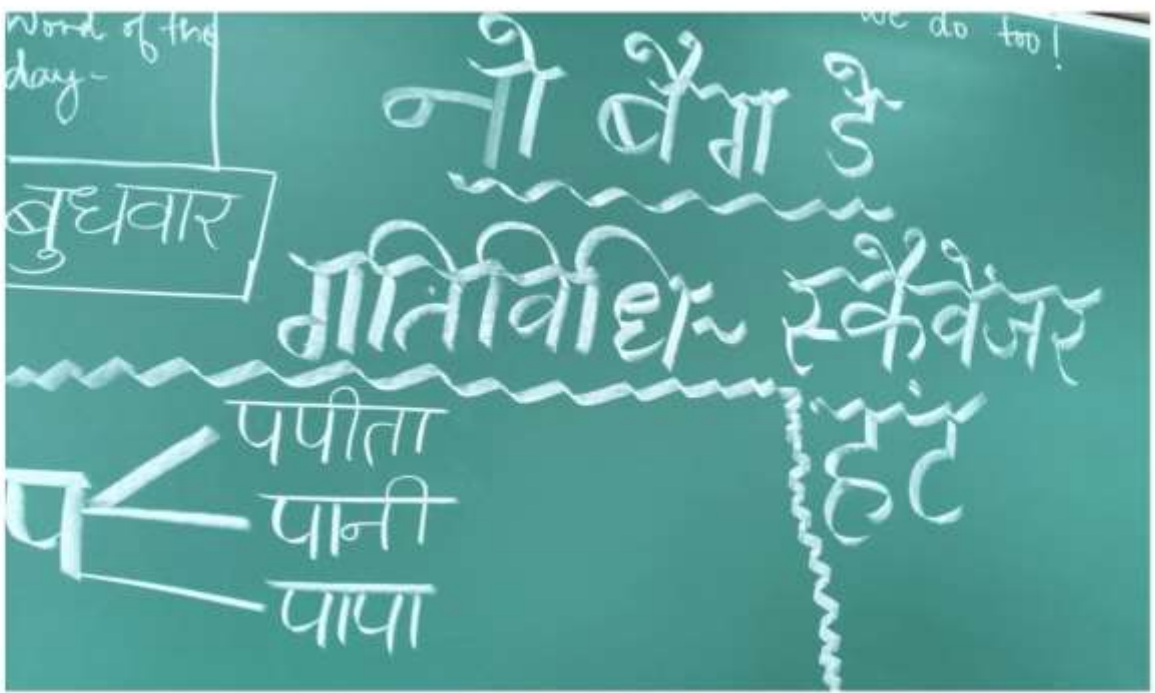 Word of the
day-
we do too!
नो बैग डे
बुधवार
गतिविधि~ स्कैवेंजर
हंट
प
पपीता
पानी
पापा